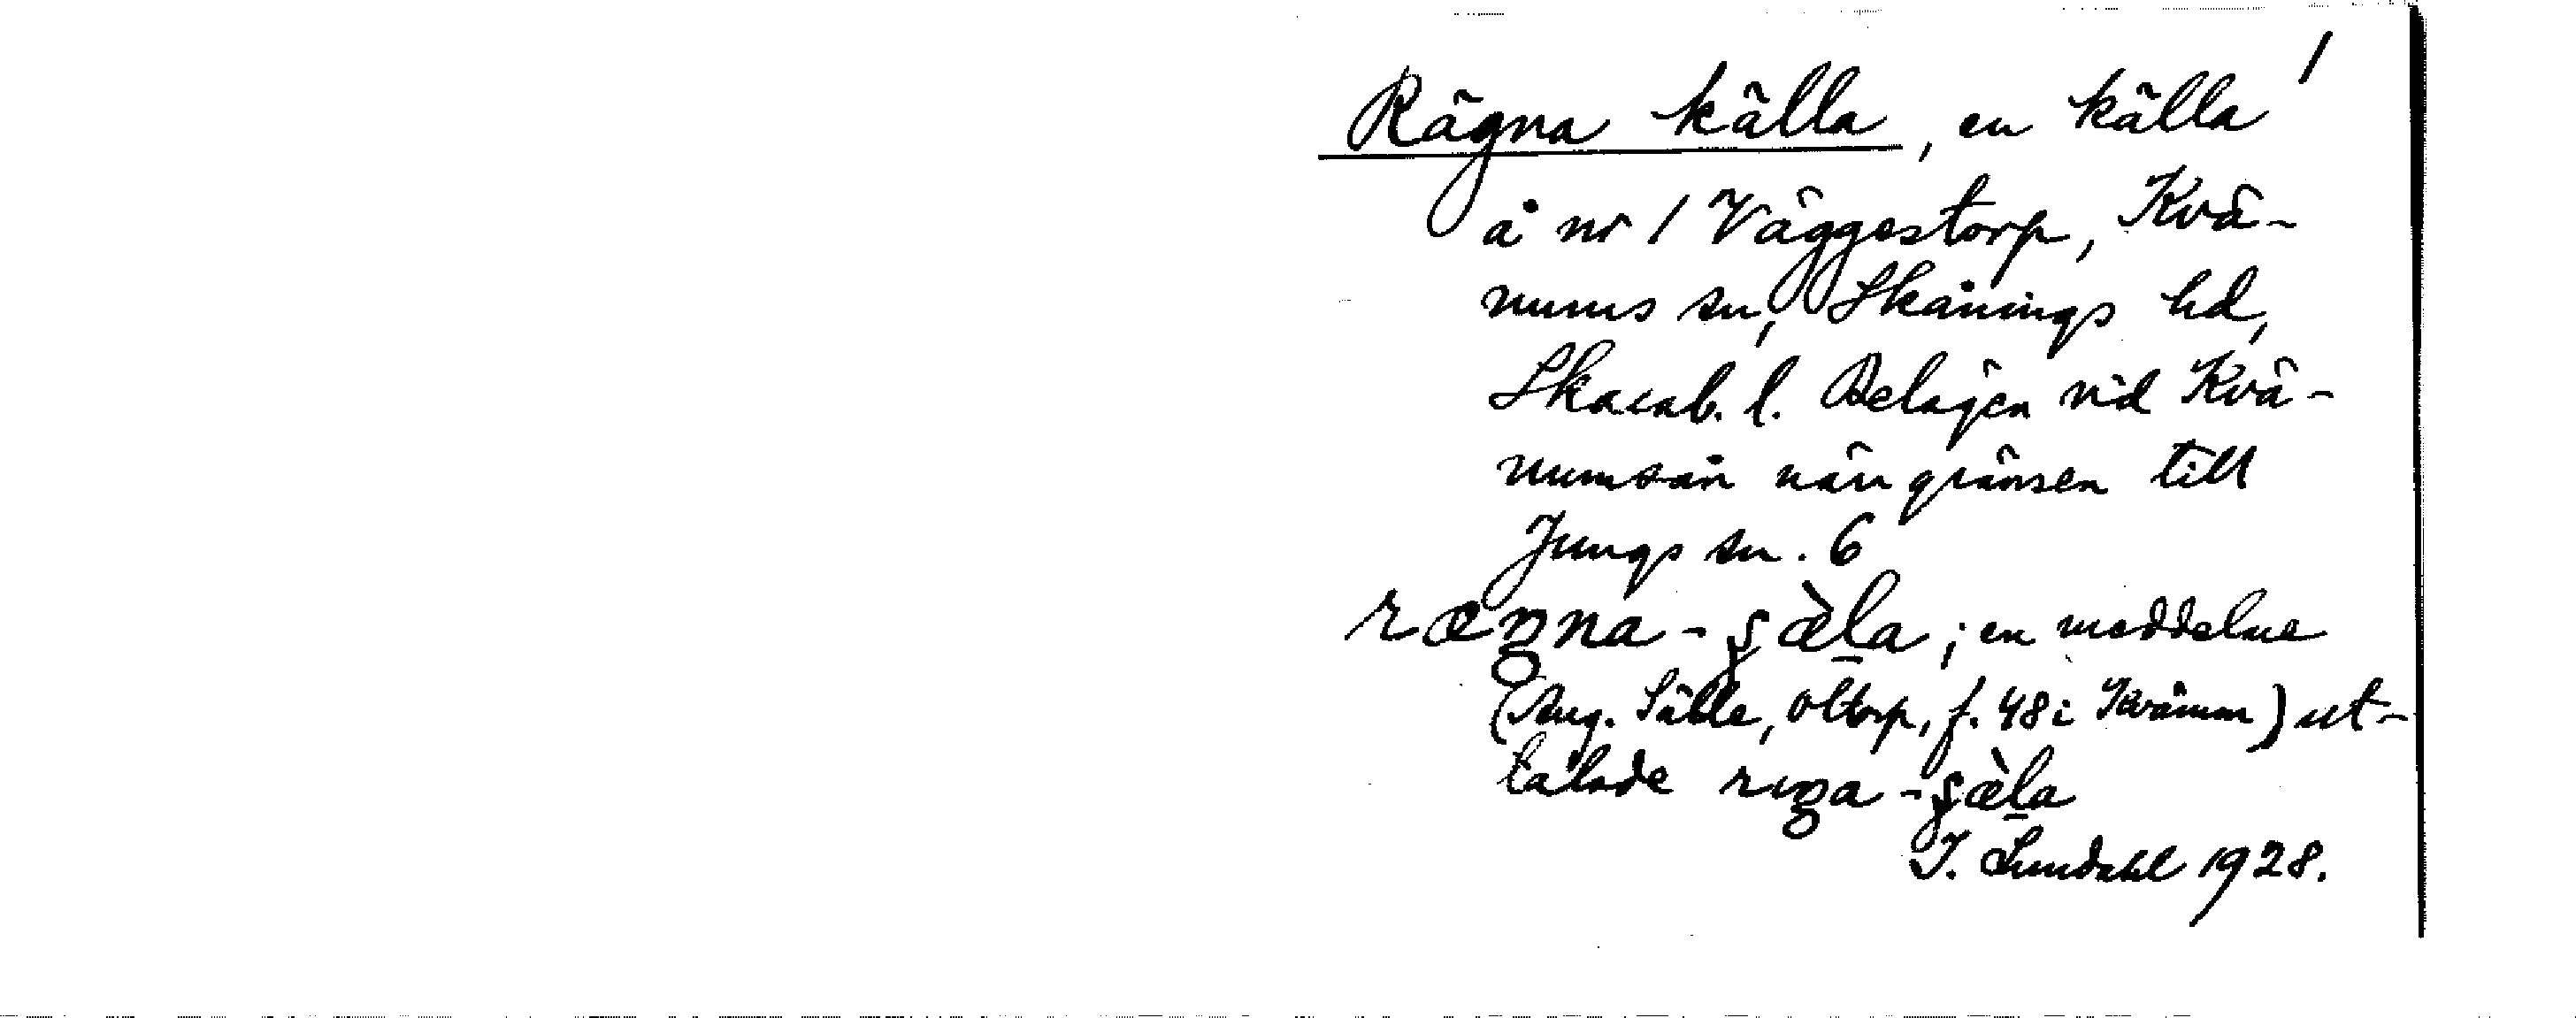 1
Rägna källa, en källa
å nr 1 Väggestorp, Kvä-
nums sn, Skånings hd,
Skarab. l. Belägen vid Kvä-
numsån nära gränsen till
Jungs sn. 6
ræŋna-ʂæ̀la; en meddelare
(Aug. Sälle, Oltorp, f. 48 i Kvänum) ut-
talade rıŋa-ʂæ̀la
I. Lundahl 1928.